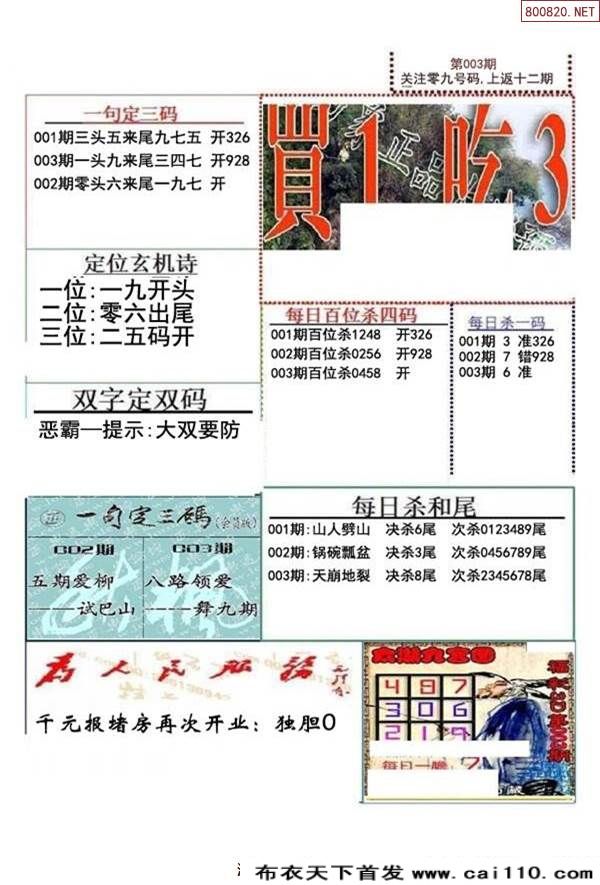 800820.NET
第003期
关注零九号码,上返十二期
一句定三码
001期三头五来尾九七五 开326
003期一头九来尾三四七 开928
002期零头六来尾一九七 开
買1吃3
正品
定位玄机诗
一位:一九开头
二位:零六出尾
三位:二五码开
每日百位杀四码
001期百位杀1248 开326
002期百位杀0256 开928
003期百位杀0458 开
每日杀一码
001期 3 准326
002期 7 错928
003期 6 准
双字定双码
恶霸—提示:大双要防
一句定三碼(会员版)
002期 003期
五期爱柳 八路领爱
——试巴山 ——舞九期
每日杀和尾
001期:山人劈山 决杀6尾 次杀0123489尾
002期:锅碗瓢盆 决杀3尾 次杀0456789尾
003期:天崩地裂 决杀8尾 次杀2345678尾
为人民服务
千元报堵房再次开业: 独胆0
4 8 7
3 0 6
2 1 9
每日一胆 7
布衣天下首发 www.cai110.com